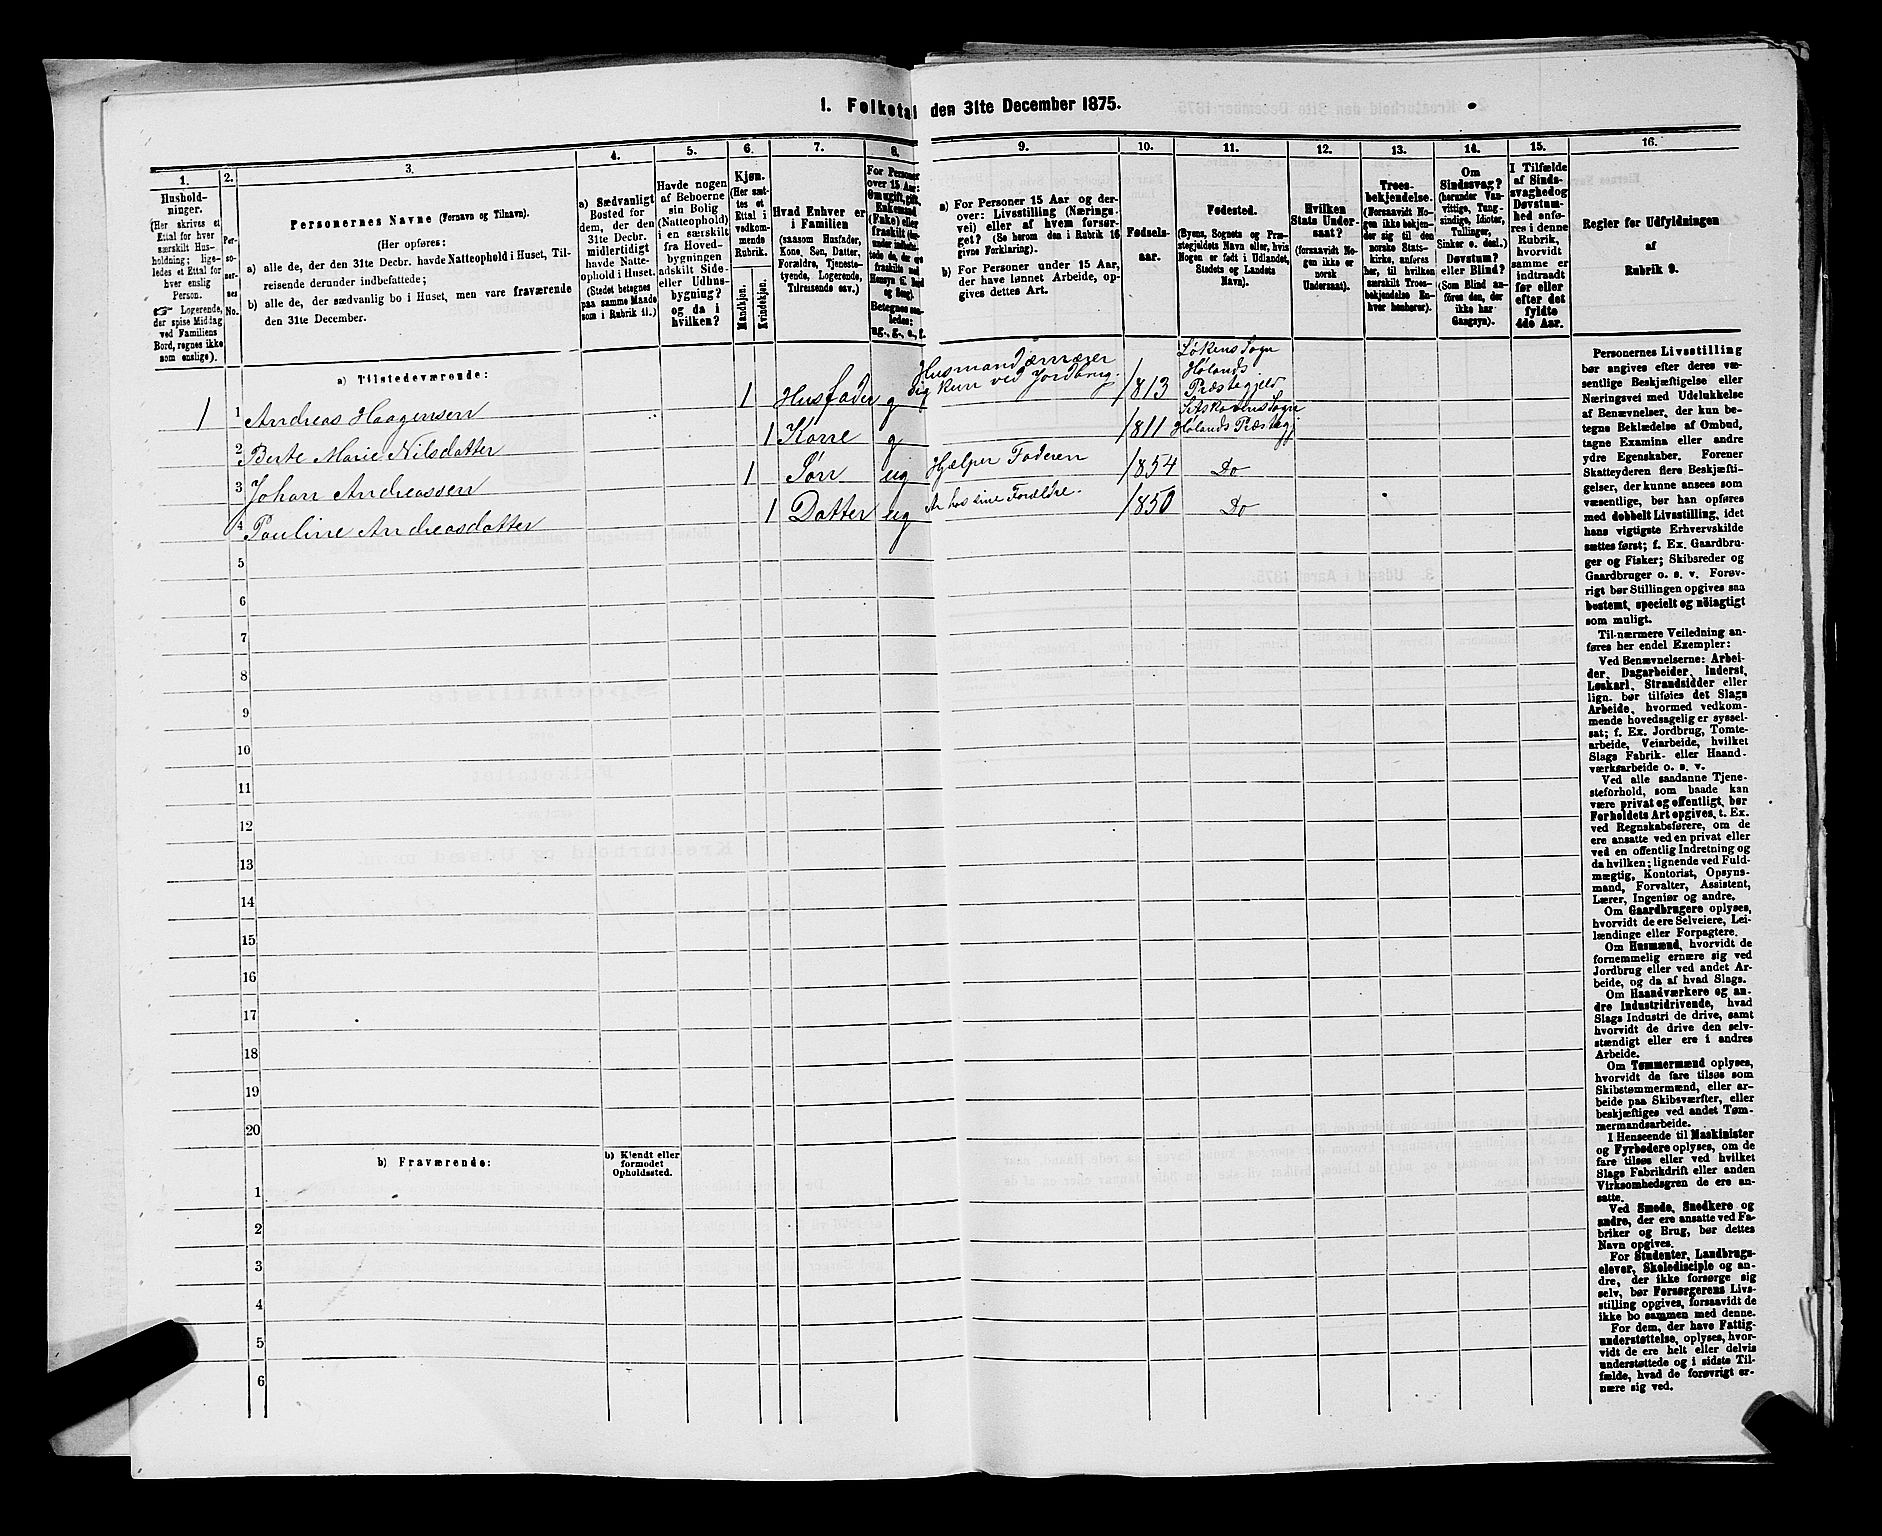 1. Folketal den 31te December 1875.
1.
Hushold-
ninger.
(Her skrives et
Ettal for hver
særskilt Hus-
holdning; lige-
ledes et Ettal for
hver enslig
Person.
☞ Logerende,
der spise Middag
ved Familiens
Bord, regnes ikke
som enslige).
2.
Per-
so-
ner-
nes
No.
3.
Personernes Navne (Fornavn og Tilnavn).
(Her opføres:
a) alle de, der den 31te Decbr. havde Natteophold i Huset, Til-
reisende derunder indbefattede;
b) alle de, der sædvanlig bo i Huset, men vare fraværende
den 31te December.
4.
a) Sædvanligt
Bosted for
dem, der den
31te Decbr.
midlertidigt
havde Natte-
ophold i Huset.
(Stedet betegnes
paa samme Maade
som i Rubrik 11.)
5.
Havde nogen
af Beboerne
sin Bolig
(Natteophold)
i en særskilt
fra Hoved-
bygningen
adskilt Side-
eller Udhus-
bygning?
og da i
hvilken?
6.
Kjøn.
(Her sæt-
tes et
Ettal i
vedkom-
mende
Rubrik.
Mandkjøn.
Kvindekjøn.
7.
Hvad Enhver er
i Familien
(saasom Husfader,
Kone, Søn, Datter,
Forældre, Tjeneste-
tyende, Logerende,
Tilreisende osv.)
8.
For Personer
over 15 Aar:
Om ugift, gift,
Enkemand
(Enke) eller
fraskilt
9.
a) For Personer 15 Aar og der-
over: Livsstilling (Nærings-
vei) eller af hvem forsør-
get? (Se herom den i Rubrik 16
givne Forklaring).
b) For Personer under 15 Aar,
der have lønnet Arbeide, op-
gives dettes Art.
10.
Fødsels-
aar.
11.
Fødested.
(Byens, Sognets og Præ-
stegjeldets Navn eller, hvis
Nogen er født i Udlandet,
Stedets og Landets
Navn).
12.
Hvilken
Stats Under-
saat?
(forsaavidt No-
gen ikke er
norsk
Undersaat).
13.
Troes-
bekjendelse.
(Forsaavidt No-
gen ikke bekjen-
der sig til den
norske Stats-
kirke, anføres
her, til hvilken
særskilt Troes-
bekjendelse En-
hver henhører).
14.
Om
Sindssvag?
(herunder Van-
vittige, Tung-
sindige, Idioter,
Tullinger,
Sinker o. desl.)
Døvstum?
eller Blind?
(Som Blind an-
føres den, der
ikke har
Gangsyn).
15.
I Tilfælde
af Sinds-
svaghed og
Døvstum-
hed anfø-
res i denne
Rubrik,
hvorvidt
samme er
indtraadt
før eller
efter det
fyldte
4de Aar.
16.
Regler for Udfyldningen
af
Rubrik 9.
a) Tilstedeværende:
1 1 Andreas Haagensen 1 Husfader g Husmand ærnærer sig kun ved Jordbrug. 1813 Løkens Sogn Hølands Præstegjeld
2 Berte Marie Nilsdatter 1 Kone g 1811 Sogn Hølands Præstegj
3 Johan Andreassen 1 Søn ug Hjælper Faderen 1854 Do
4 Pauline Andreasdatter 1 Datter ug Er hos sine Forældre. 1850 Do
5
6
7
8
9
10
11
12
13
14
15
16
17
18
19
20
b) Fraværende:
b) Kjendt eller
formodet
Opholdssted.
1
2
3
4
5
6
Personernes Livsstilling
bør angives efter deres væ-
sentlige Beskjæftigelse eller
Næringsvei med Udelukkelse
af Benævnelser, der kun be-
tegne Beklædelse af Ombud,
tagne Examina eller andre
ydre Egenskaber. Forener
Skatteyderen flere Beskjæfti-
gelser, der kunne ansees som
væsentlige, bør han opføres
med dobbelt Livsstilling, idet
hans vigtigste Erhvervskilde
sættes først; f. Ex. Gaardbru-
ger og Fisker; Skibsreder og
Gaardbruger o. s. v. Forøv-
rigt bør Stillingen opgives saa
bestemt, specielt og nøiagtigt
som muligt.
Til nærmere Veiledning an-
føres her endel Exempler:
Ved Benævnelserne: Arbei-
der, Dagarbeider, Inderst,
Løskarl, Strandsidder eller
lign. bør tilføies det Slags
Arbeide, hvormed vedkom-
mende hovedsagelig er syssel-
sat; f. Ex. Jordbrug, Tomte-
arbeide, Veiarbeide, hvilket
Slags Fabrik- eller Haand-
værksarbeide o. s. v.
Ved alle saadanne Tjene-
steforhold, som baade kan
være privat og offentligt, bør
Forholdets Art opgives, t. Ex.
ved Regnskabsførere, om de
ere ansatte ved en privat eller
ved en offentlig Indretning og
da hvilken; lignende ved Fuld-
mægtig, Kontorist, Opsyns-
mand, Forvalter, Assistent,
Lærer, Ingeniør og andre.
Om Gaardbrugere oplyses,
hvorvidt de ere Selveiere, Lei-
lændinge eller Forpagtere.
Om Husmænd, hvorvidt de
fornemmelig ernære sig ved
Jordbrug eller ved andet Ar-
beide, og da af hvad Slags.
Om Haandværkere og an-
dre Industridrivende, hvad
Slags Industri de drive, samt
hvorvidt de drive den selv-
stændigt eller ere i andres
Arbeide.
Om Tømmermænd oplyses,
hvorvidt de fare tilsøs som
Skibstømmermænd, eller ar-
beide paa Skibsværfter, eller
beskjæftiges ved andet Tøm-
mermandsarbeide.
I Henseende til Maskinister
og Fyrbødere oplyses, om de
fare tilsøs eller ved hvilket
Slags Fabrikdrift eller anden
Virksomhedsgren de ere an-
satte.
Ved Smede, Snedkere og
andre, der ere ansatte ved Fa-
briker og Brug, bør dettes
Navn opgives.
For Studenter, Landbrugs-
elever, Skoledisciple og an-
dre, der ikke forsørge sig
selv, bør Forsørgerens Livs-
stilling opgives, forsaavidt de
ikke bo sammen med denne.
For dem, der have Fattig-
understøttelse, oplyses, hvor-
vidt de ere helt eller delvis
understøttede og i sidste Til-
fælde, hvad de forøvrigt er-
nære sig ved.